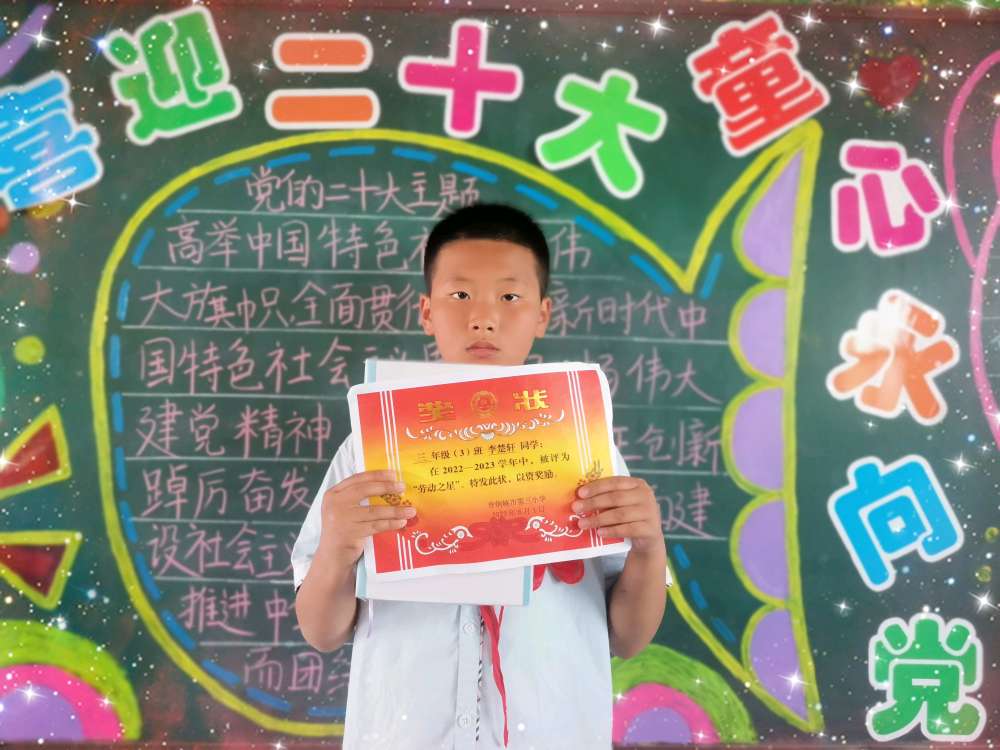 喜迎二十大 童心永向党
党的二十大主题
高举中国特色 伟
大旗帜,全面贯彻 新时代中
国特色社会主义 扬伟大
建党精神 正创新
踔厉奋发 建
设社会主义
推进中
而团结
奖状
三年级（3）班 李楚轩 同学：
在2022—2023学年中，被评为
“劳动之星”，特发此状，以资奖励。
市第三小学